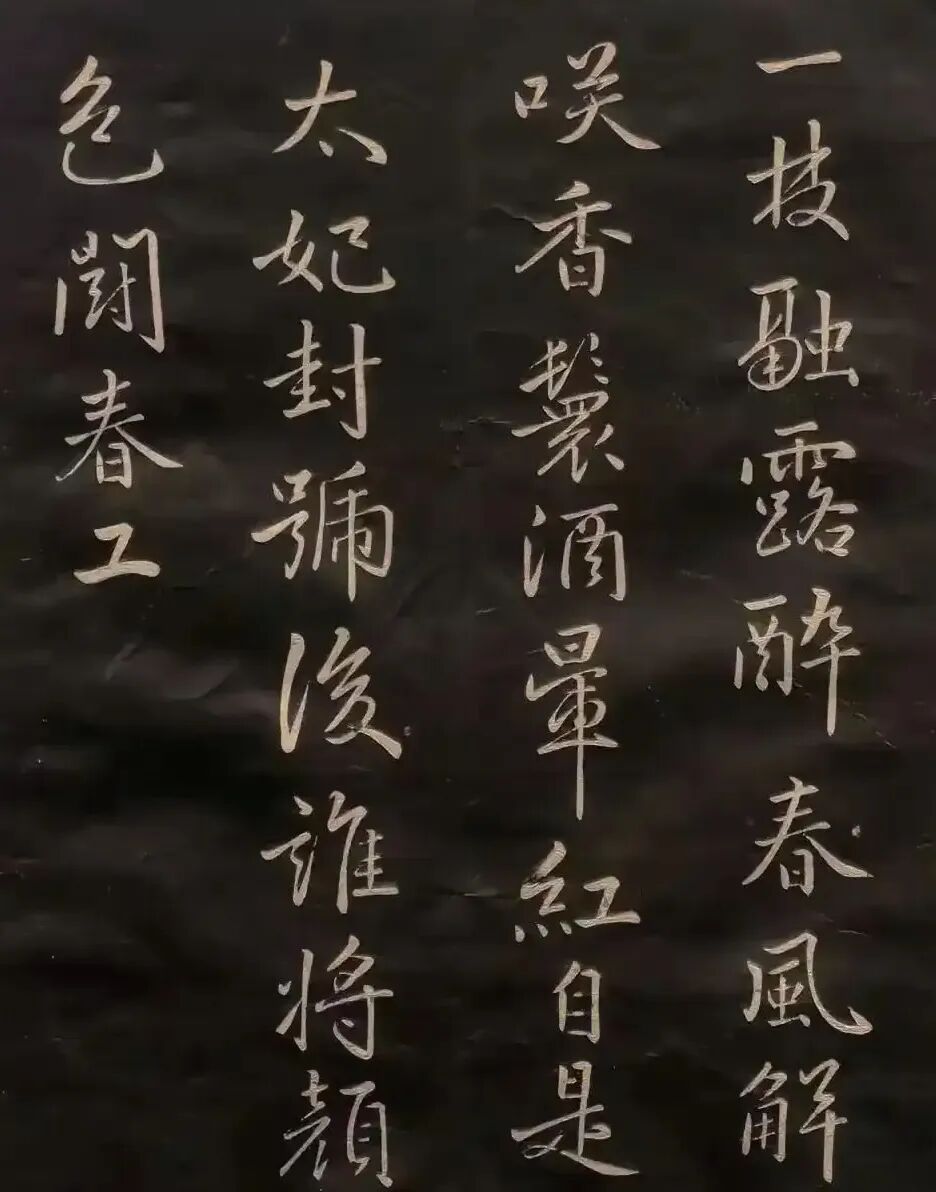 一枝融露醉春風解
咲香鬟酒暈紅自是
太妃封號後誰將顔
色闘春工